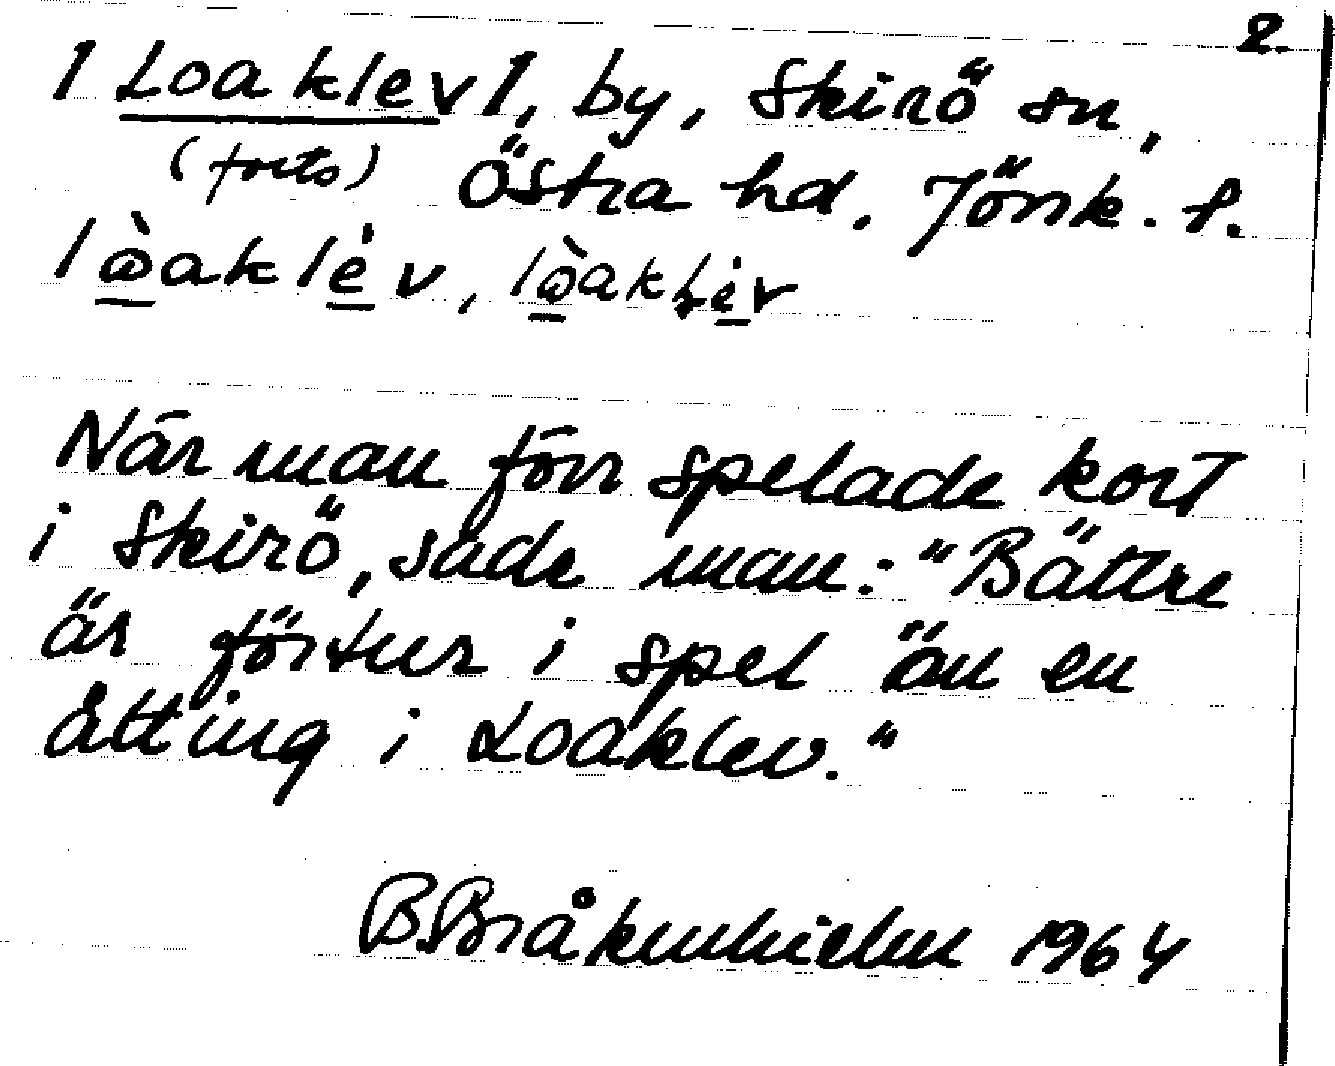 2.
[Loaklev], by, Skirö sn,
(forts) Östra hd. Jönk. l.
lòaklèv, lòakḷèv
När man förr spelade kort
i Skirö, sade man: "Bättre
är förtur i spel än en
åtting i Loaklev."
B. Bråkenhielm 1964